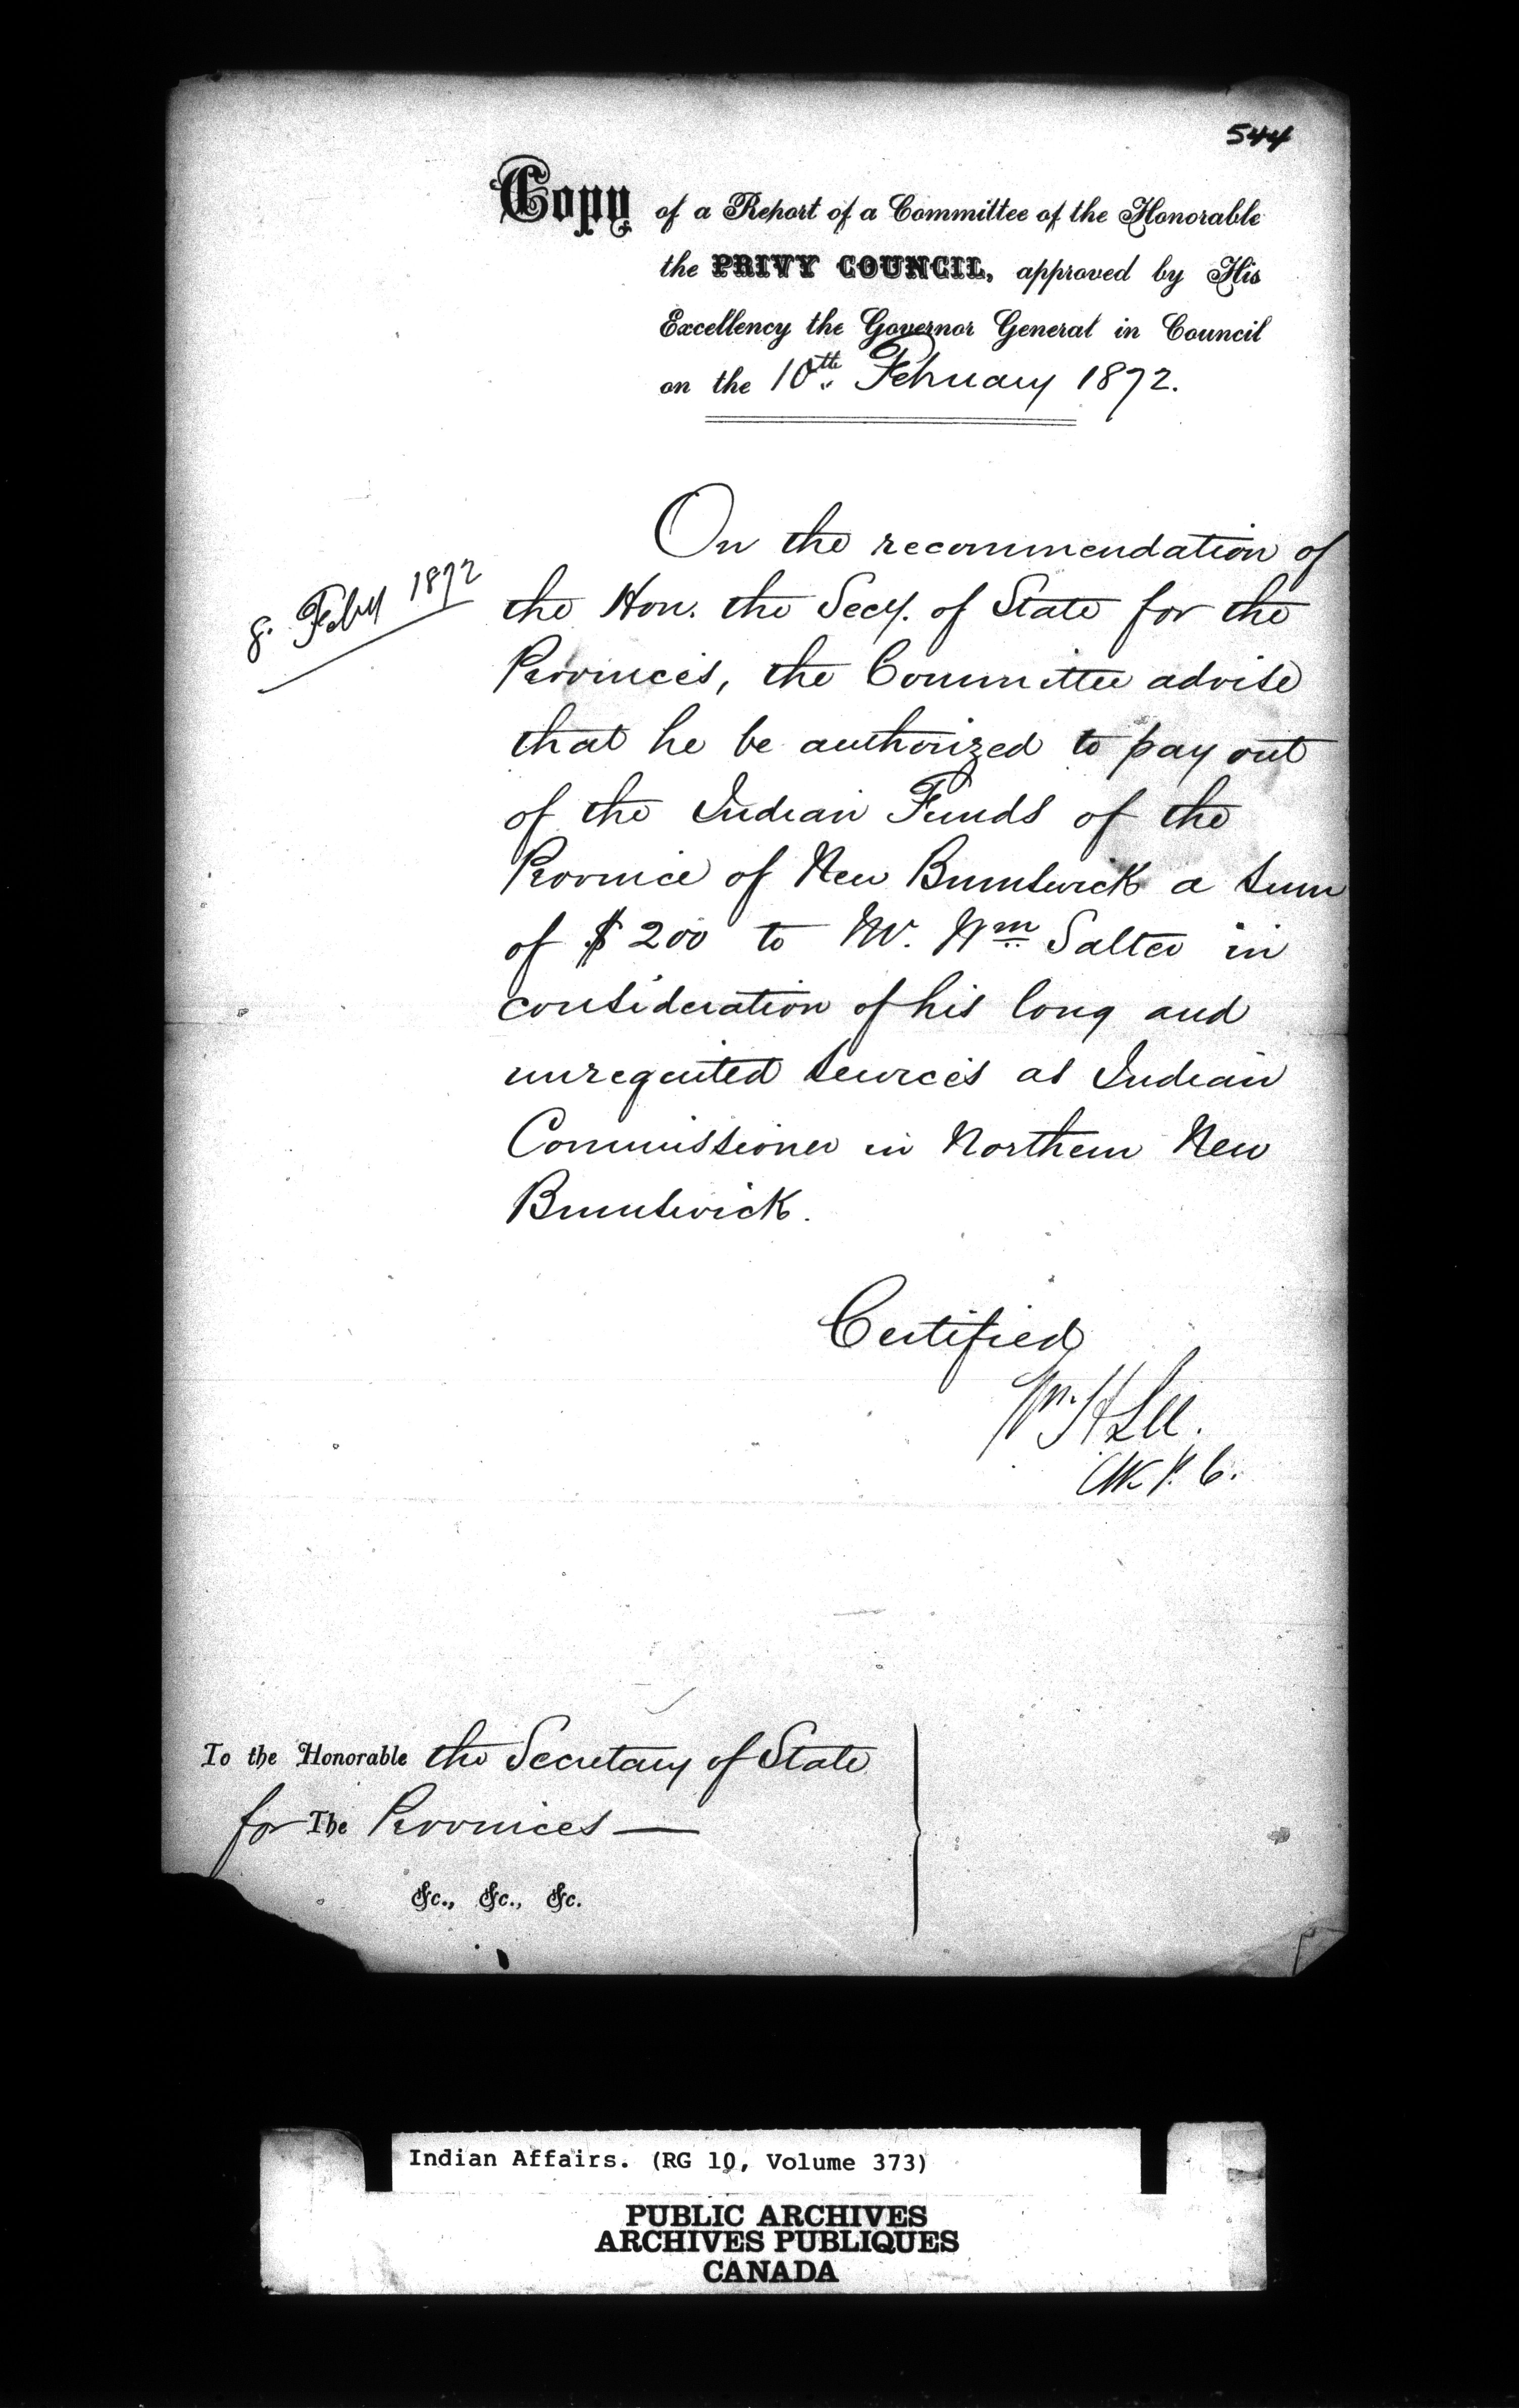 544
Copy of a Report of a Committee of the Honorable
the PRIVY COUNCIL, approved by His
Excellency the Governor General in Council
on the 10th February 1872.
8. Feby 1872
On the recommendation of
the Hon. the Secy. of State for the
Provinces, the Committee advise
that he be authorized to pay out
of the Indian Funds of the
Province of New Brunswick a sum
of $200 to Mr. Wm Salter in
consideration of his long and
unrequited services as Indian
Commissioner in Northern New
Brunswick.
Certified
Wm. H Lee.
Clk. P. C.
To the Honorable the Secretary of State
for The Provinces —
&c., &c., &c.
Indian Affairs. (RG 10, Volume 373)
PUBLIC ARCHIVES
ARCHIVES PUBLIQUES
CANADA